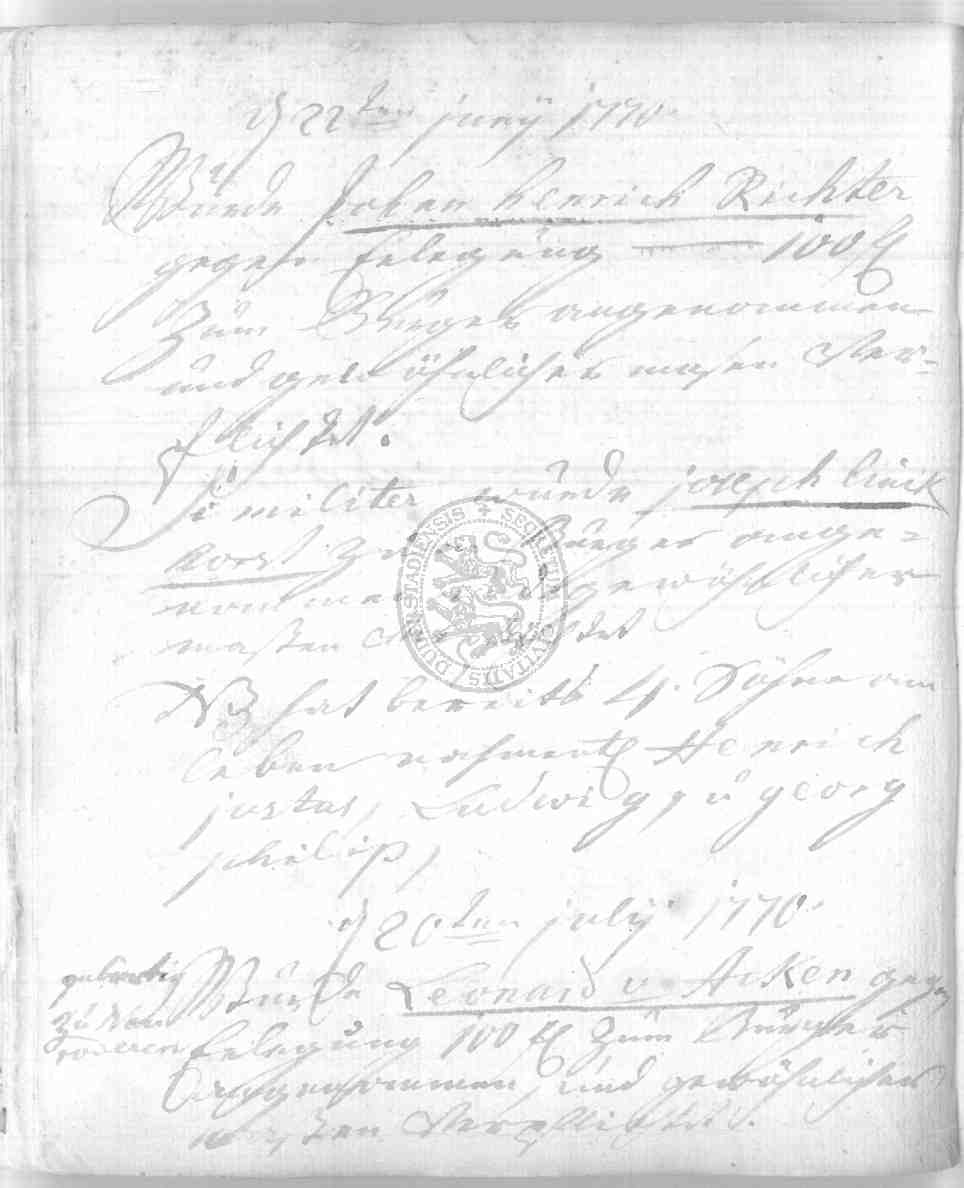 d 22ten junÿ 1770
Wurde Johan henrich Richter
gegen Erlegung 100 fl
Zum Bürger angenommen
und gewöhnlicher maßen Ver-
pflichtet.
Similiter wurde joseph
Zum Bürger ange-
nommen gewöhnlicher
maßen
NB hat bereits 4 Söhne am
Leben nahmentl Henrich
justus, Ludwig, u georg
philip,
d 20ten julÿ 1770
Wurde Leonard v. Acken gegen
Erlegung 100 fl Zum Bürger
angenommen, und gewöhnlicher
maßen Verpflichtet.
gebürtig
SECRETUM CIVITATIS DUDERSTADENSIS